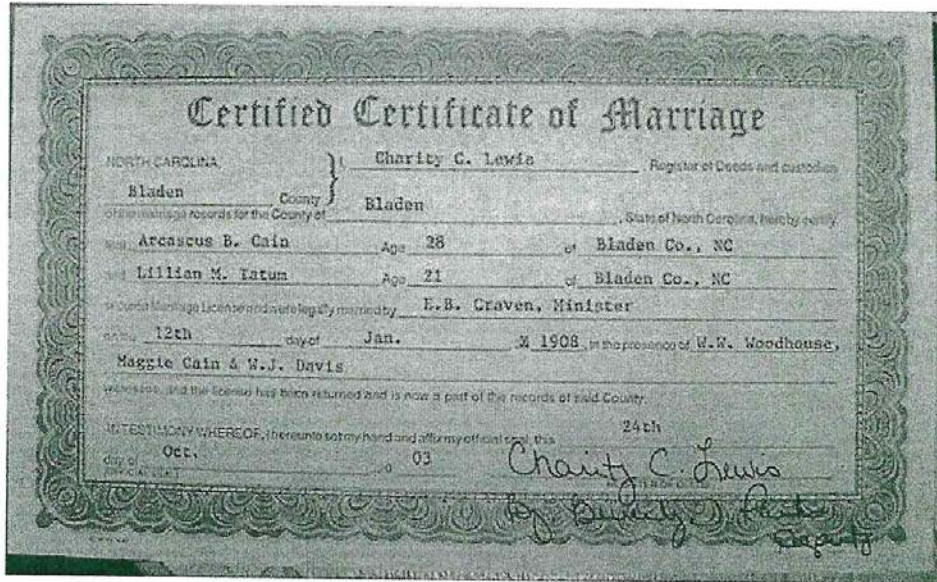 Certified Certificate of Marriage
NORTH CAROLINA, } I, Charity C. Lewis, Register of Deeds and custodian
Bladen County
of the marriage records for the County of Bladen, State of North Carolina, hereby certify
that Arcascus B. Cain Age 28 of Bladen Co., NC
and Lillian M. Tatum Age 21 of Bladen Co., NC
Marriage License and were legally married by E.B. Craven, Minister
on the 12th day of Jan. 1908, in the presence of W.W. Woodhouse,
Maggie Cain & W.J. Davis
witnesses, and the license has been returned and is now a part of the records of said County.
IN TESTIMONY WHEREOF, I hereunto set my hand and affix my official seal, this 24th
day of Oct. 03
Charity C. Lewis
By Deputy